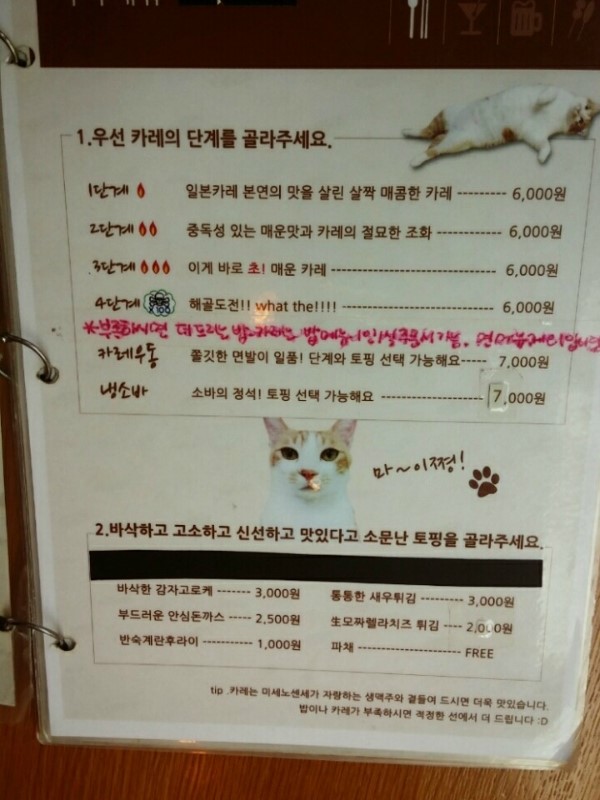 1.우선 카레의 단계를 골라주세요.
1단계 일본카레 본연의 맛을 살린 살짝 매콤한 카레 --------- 6,000원
2단계 중독성 있는 매운맛과 카레의 절묘한 조화 ------------ 6,000원
3단계 이게 바로 초! 매운 카레 ----------------------------- 6,000원
4단계 X100 해골도전!! what the!!!! --------------------------- 6,000원
*부족하시면 더 드리는 밥, 카레는 밥메뉴
카레우동 쫄깃한 면발이 일품! 단계와 토핑 선택 가능해요----- 7,000원
냉소바 소바의 정석! 토핑 선택 가능해요 ------------------- 7,000원
마~이쪙!
2.바삭하고 고소하고 신선하고 맛있다고 소문난 토핑을 골라주세요.
바삭한 감자고로케 ------- 3,000원 통통한 새우튀김 --------- 3,000원
부드러운 안심돈까스 ----- 2,500원 生모짜렐라치즈 튀김 ---- 2,000원
반숙계란후라이 ---------- 1,000원 파채 ---------------------- FREE
tip .카레는 미세노센세가 자랑하는 생맥주와 곁들여 드시면 더욱 맛있습니다.
밥이나 카레가 부족하시면 적정한 선에서 더 드립니다 :D